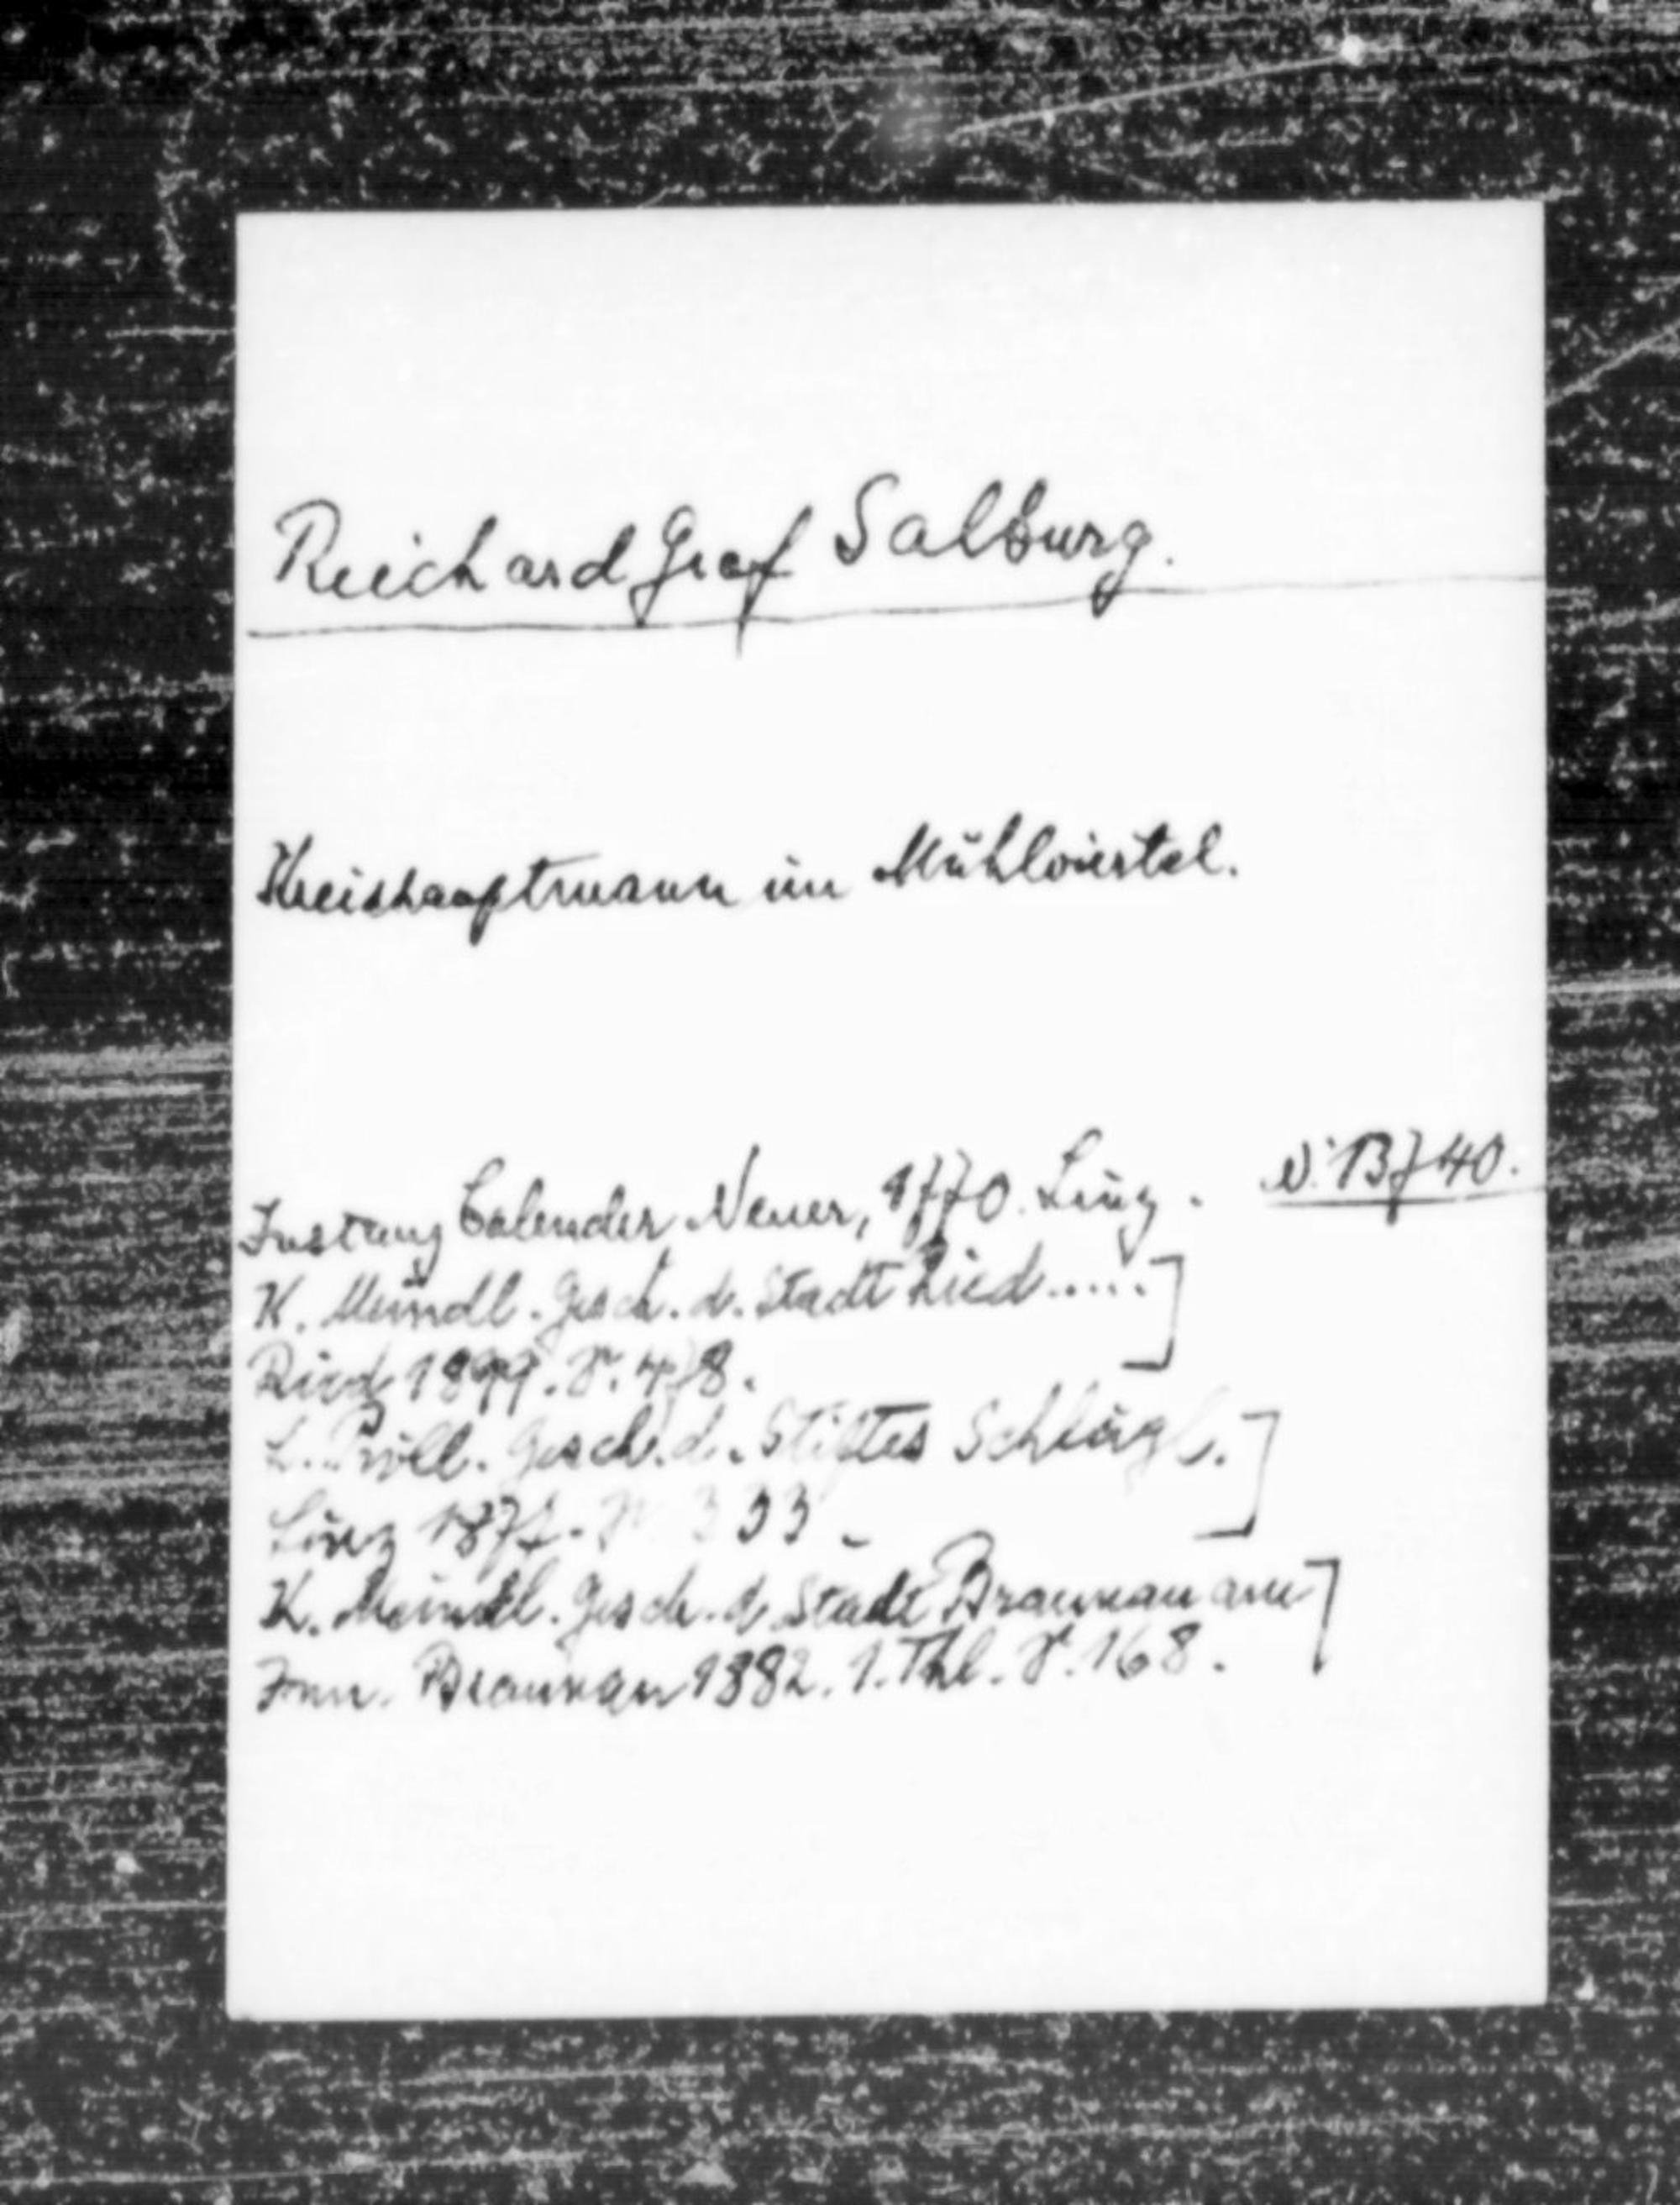 Reichard Graf Salburg.
Kreishauptmann im Mühlviertel.
N. 13740.
Instanz Calender Neuer, 1770. Linz.
K. Meindl. Gesch. d. Stadt Ried.....]
Ried 1899. S. 478.
L. Pröll. Gesch. d. Stiftes Schlägl.]
Linz 1877. S. 333.
K. Meindl. Gesch. d. Stadt Braunau am]
Inn. Braunau 1882. 1. Thl. S. 168.